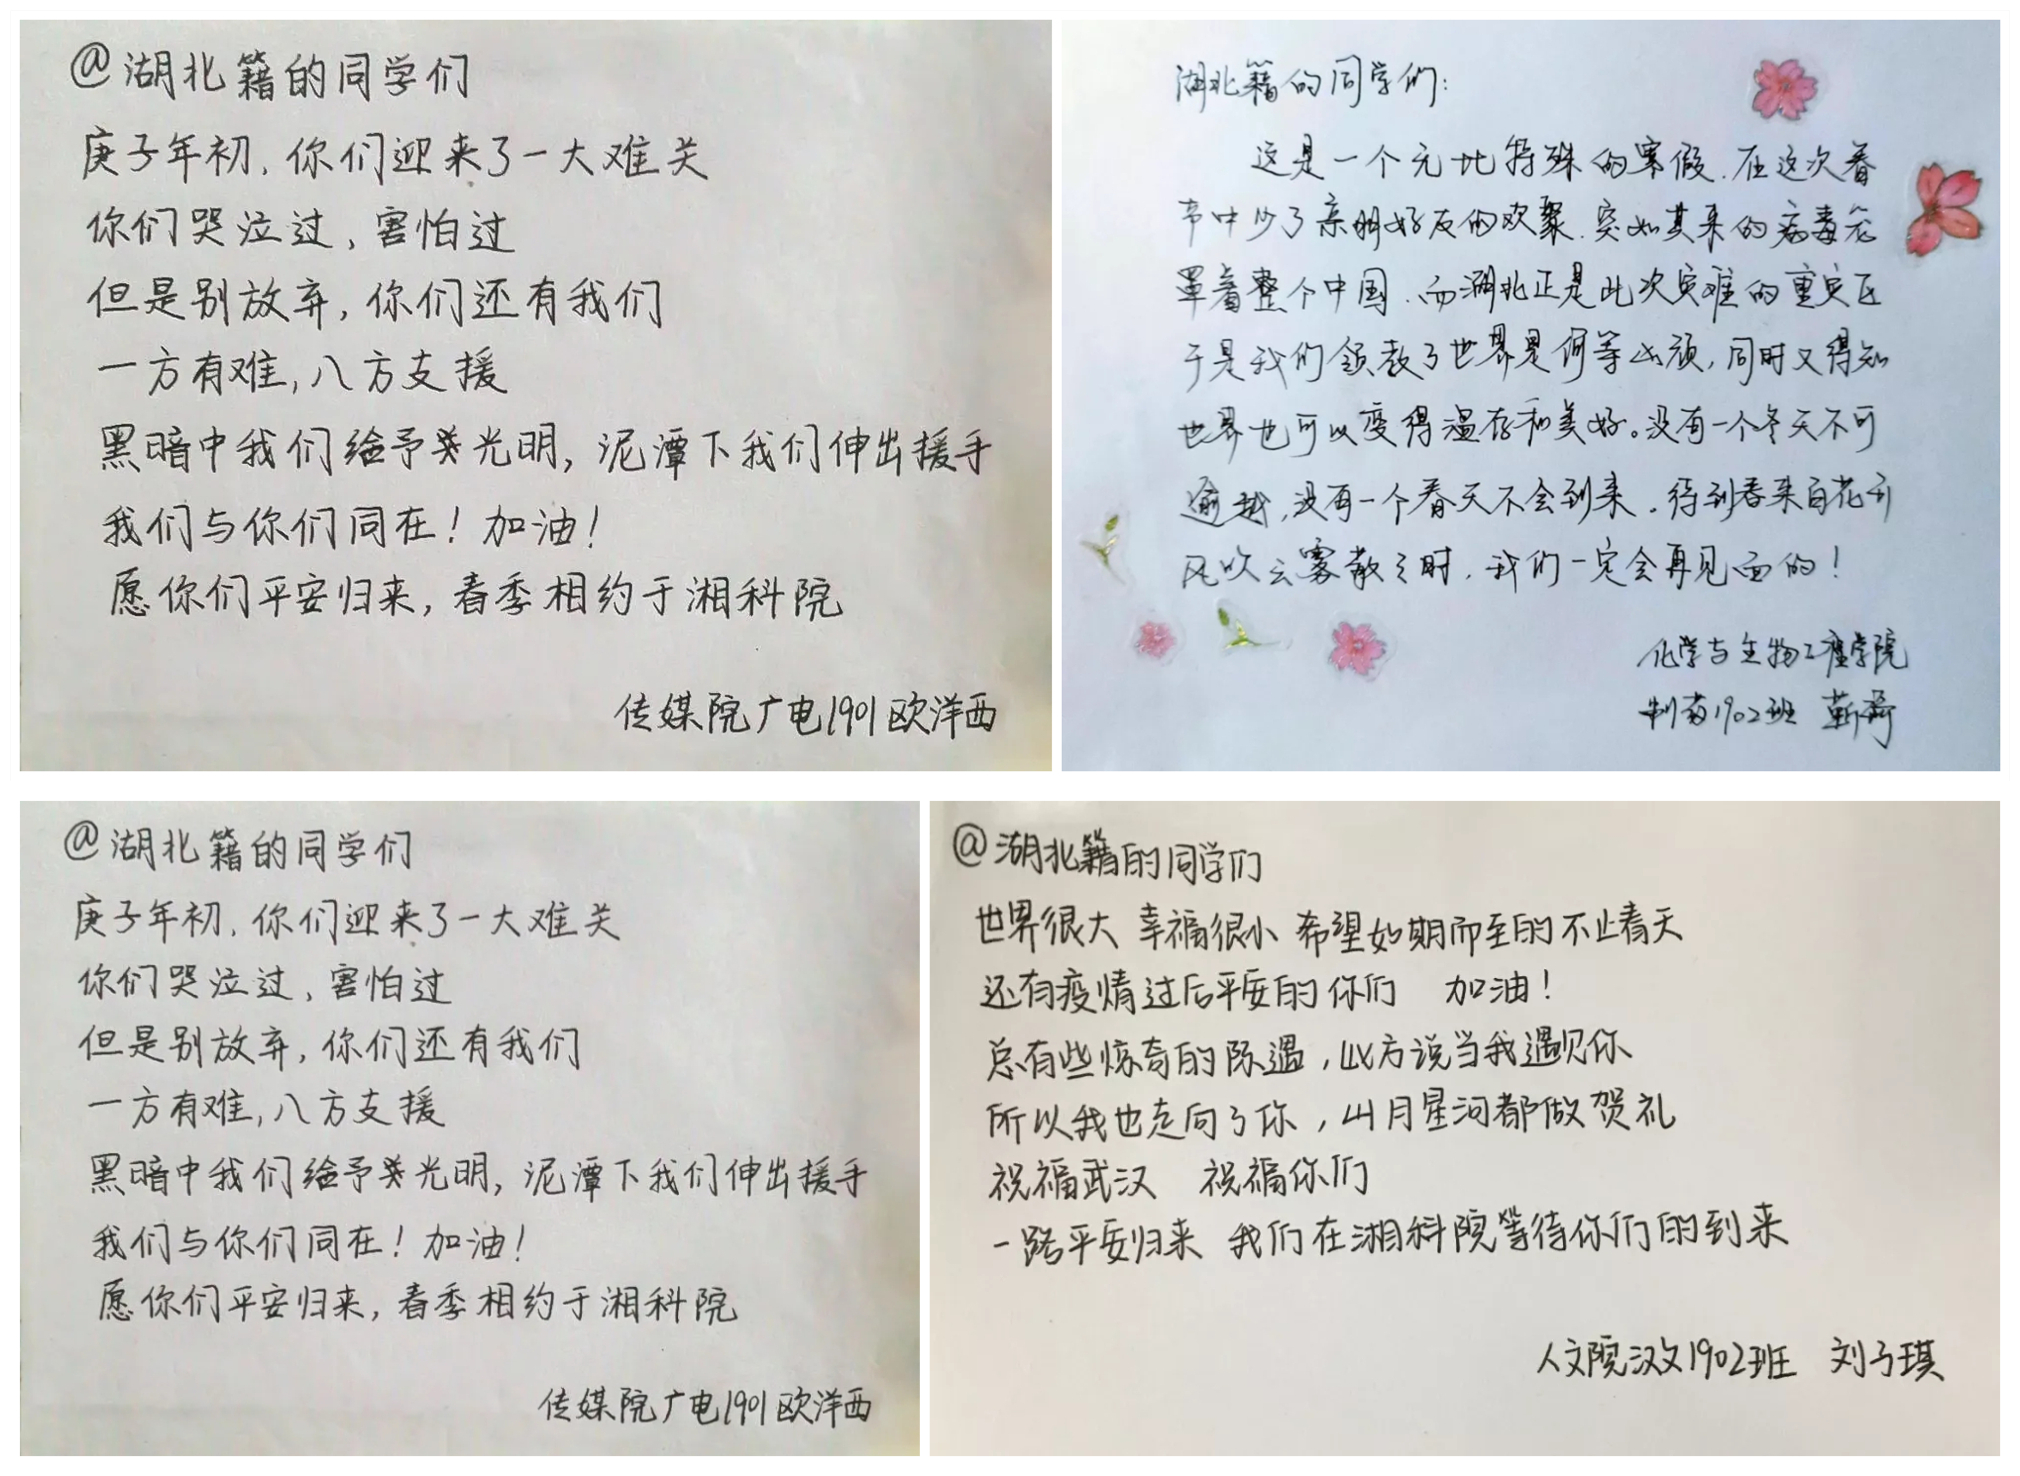 @湖北籍的同学们
庚子年初,你们迎来了一大难关
你们哭泣过,害怕过
但是别放弃,你们还有我们
一方有难,八方支援
黑暗中我们给予光明,泥潭下我们伸出援手
我们与你们同在!加油!
愿你们平安归来,春季相约于湘科院
传媒院广电1901欧洋西
湖北籍的同学们:
这是一个无比特殊的寒假.在这次春
节中少了亲朋好友的欢聚.突如其来的病毒笼
罩着整个中国.而湖北正是此次灾难的重灾区
于是我们领教了世界是何等凶顽,同时又得知
世界也可以变得温存和美好。没有一个冬天不可
逾越,没有一个春天不会到来。待到春来百花开
风吹云雾散之时,我们一定会再见面的!
化学与生物工程学院
制药1902班 靳
@湖北籍的同学们
庚子年初,你们迎来了一大难关
你们哭泣过,害怕过
但是别放弃,你们还有我们
一方有难,八方支援
黑暗中我们给予光明,泥潭下我们伸出援手
我们与你们同在!加油!
愿你们平安归来,春季相约于湘科院
传媒院广电1901欧洋西
@湖北籍的同学们
世界很大 幸福很小 希望如期而至的不止春天
还有疫情过后平安的你们 加油!
总有些惊奇的际遇,比方说当我遇见你
所以我也走向了你,山月星河都做贺礼
祝福武汉 祝福你们
一路平安归来 我们在湘科院等待你们的到来
人文院汉文1902班 刘子琪